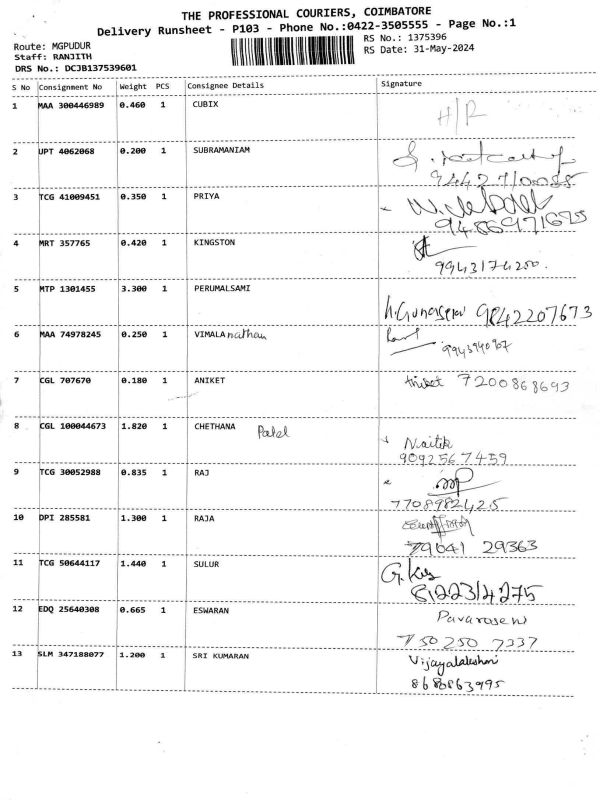 THE PROFESSIONAL COURIERS, COIMBATORE
Delivery Runsheet - P103 - Phone No.:0422-3505555 - Page No.:1
Route: MGPUDUR
RS No.: 1375396
Staff: RANJITH
RS Date: 31-May-2024
DRS No.: DCJB137539601
S No Consignment No Weight PCS Consignee Details Signature
1 MAA 300446989 0.460 1 CUBIX H/R
2 UPT 4062068 0.200 1 SUBRAMANIAM
9442710085
3 TCG 41009451 0.350 1 PRIYA
9486971625
4 MRT 357765 0.420 1 KINGSTON
9943174250.
5 MTP 1301455 3.300 1 PERUMALSAMI
9842207673
6 MAA 74978245 0.250 1 VIMALA nathan
9943940907
7 CGL 707670 0.180 1 ANIKET Aniket 7200868693
8 CGL 100044673 1.820 1 CHETHANA Patel
Naitik
9092567459
9 TCG 30052988 0.835 1 RAJ
7708982425
10 DPI 285581 1.300 1 RAJA
79041 29363
11 TCG 50644117 1.440 1 SULUR
8122314275
12 EDQ 25640308 0.665 1 ESWARAN
750 250 7337
13 SLM 347188077 1.200 1 SRI KUMARAN Vijayalakshmi
8680863995